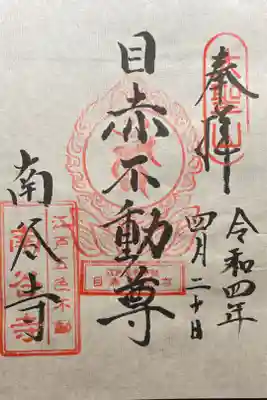 奉拝
令和四年
四月二十日
目赤不動尊
南谷寺
江戸五色不動
南谷寺